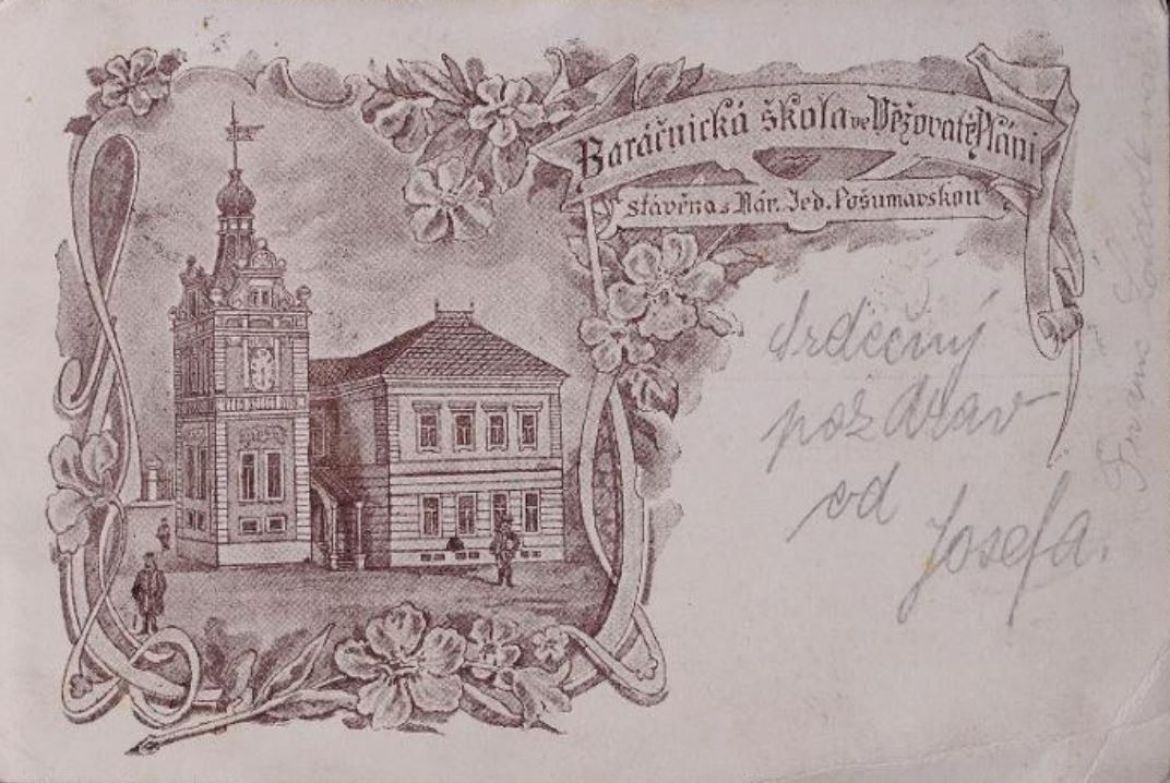 Baráčnická škola ve Věžovaté Pláni
stavěna s Nár. Jed. Pošumavskou
Srdečný
pozdrav
od
Josefa.